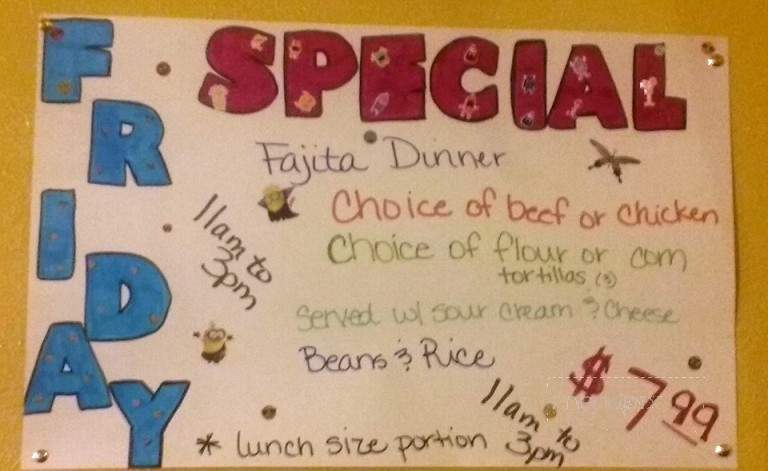 FRIDAY
SPECIAL
Fajita Dinner
11am to
3pm
Choice of beef or chicken
Choice of flour or corn
tortillas (3)
Served w/ sour cream & cheese
Beans & Rice
$7.99
11am to
3pm
* lunch size portion